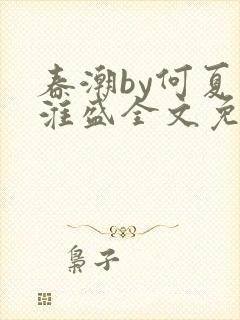 春潮by何夏
滩盛全文免
枭子